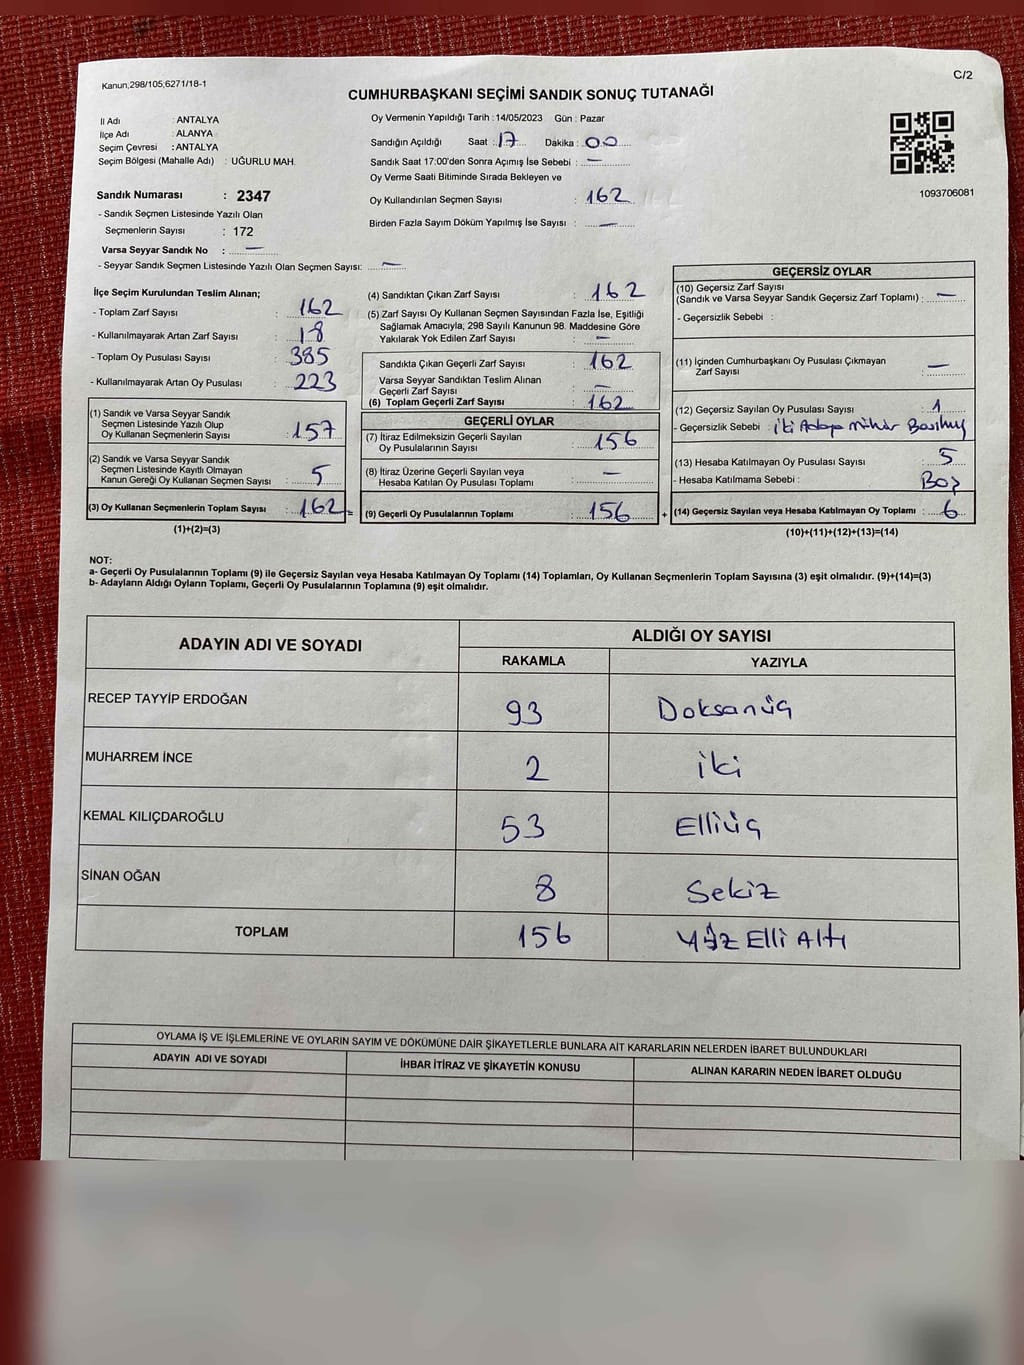 Kanun,298/105;6271/18-1
C/2
CUMHURBAŞKANI SEÇİMİ SANDIK SONUÇ TUTANAĞI
İl Adı : ANTALYA
İlçe Adı : ALANYA
Seçim Çevresi : ANTALYA
Seçim Bölgesi (Mahalle Adı) : UĞURLU MAH.
Sandık Numarası : 2347
- Sandık Seçmen Listesinde Yazılı Olan
Seçmenlerin Sayısı : 172
Varsa Seyyar Sandık No : —
- Seyyar Sandık Seçmen Listesinde Yazılı Olan Seçmen Sayısı: —
Oy Vermenin Yapıldığı Tarih : 14/05/2023 Gün : Pazar
Sandığın Açıldığı Saat : 17 Dakika : 00
Sandık Saat 17:00'den Sonra Açımış İse Sebebi : —
Oy Verme Saati Bitiminde Sırada Bekleyen ve
Oy Kullandırılan Seçmen Sayısı : 162
Birden Fazla Sayım Döküm Yapılmış İse Sayısı : —
1093706081
İlçe Seçim Kurulundan Teslim Alınan;
- Toplam Zarf Sayısı : 162
- Kullanılmayarak Artan Zarf Sayısı : 18
- Toplam Oy Pusulası Sayısı : 385
- Kullanılmayarak Artan Oy Pusulası : 223
(1) Sandık ve Varsa Seyyar Sandık
Seçmen Listesinde Yazılı Olup
Oy Kullanan Seçmenlerin Sayısı : 157
(2) Sandık ve Varsa Seyyar Sandık
Seçmen Listesinde Kayıtlı Olmayan
Kanun Gereği Oy Kullanan Seçmen Sayısı : 5
(3) Oy Kullanan Seçmenlerin Toplam Sayısı : 162 =
(1)+(2)=(3)
(4) Sandıktan Çıkan Zarf Sayısı : 162
(5) Zarf Sayısı Oy Kullanan Seçmen Sayısından Fazla İse, Eşitliği
Sağlamak Amacıyla; 298 Sayılı Kanunun 98. Maddesine Göre
Yakılarak Yok Edilen Zarf Sayısı : —
Sandıkta Çıkan Geçerli Zarf Sayısı : 162
Varsa Seyyar Sandıktan Teslim Alınan
Geçerli Zarf Sayısı : —
(6) Toplam Geçerli Zarf Sayısı : 162
GEÇERLİ OYLAR
(7) İtiraz Edilmeksizin Geçerli Sayılan
Oy Pusulalarının Sayısı : 156
(8) İtiraz Üzerine Geçerli Sayılan veya
Hesaba Katılan Oy Pusulası Toplamı : —
(9) Geçerli Oy Pusulalarının Toplamı : 156 +
GEÇERSİZ OYLAR
(10) Geçersiz Zarf Sayısı
(Sandık ve Varsa Seyyar Sandık Geçersiz Zarf Toplamı) : —
- Geçersizlik Sebebi :
(11) İçinden Cumhurbaşkanı Oy Pusulası Çıkmayan
Zarf Sayısı : —
(12) Geçersiz Sayılan Oy Pusulası Sayısı : 1
- Geçersizlik Sebebi : iki Adaya mühür
(13) Hesaba Katılmayan Oy Pusulası Sayısı : 5
- Hesaba Katılmama Sebebi : Boş
(14) Geçersiz Sayılan veya Hesaba Katılmayan Oy Toplamı : 6
(10)+(11)+(12)+(13)=(14)
NOT:
a- Geçerli Oy Pusulalarının Toplamı (9) ile Geçersiz Sayılan veya Hesaba Katılmayan Oy Toplamı (14) Toplamları, Oy Kullanan Seçmenlerin Toplam Sayısına (3) eşit olmalıdır. (9)+(14)=(3)
b- Adayların Aldığı Oyların Toplamı, Geçerli Oy Pusulalarının Toplamına (9) eşit olmalıdır.
ADAYIN ADI VE SOYADI
ALDIĞI OY SAYISI
RAKAMLA YAZIYLA
RECEP TAYYİP ERDOĞAN 93 Doksanüç
MUHARREM İNCE 2 iki
KEMAL KILIÇDAROĞLU 53 Elliüç
SİNAN OĞAN 8 Sekiz
TOPLAM 156 Yüz Elli Altı
OYLAMA İŞ VE İŞLEMLERİNE VE OYLARIN SAYIM VE DÖKÜMÜNE DAİR ŞİKAYETLERLE BUNLARA AİT KARARLARIN NELERDEN İBARET BULUNDUKLARI
ADAYIN ADI VE SOYADI İHBAR İTİRAZ VE ŞİKAYETİN KONUSU ALINAN KARARIN NEDEN İBARET OLDUĞU